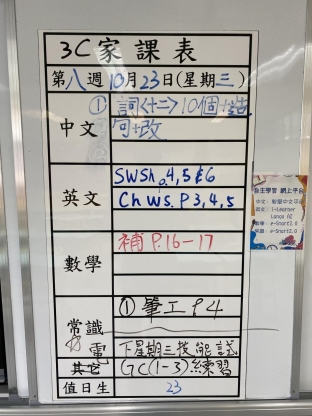 3C 家課表
第八週10月23日(星期三)
中文
① 詞<十二>10個+造
句+改
英文
SWSh 4,5&6
Ch WS. P3,4,5
數學
補 P.16-17
常識
① 筆工 P4
電
下星期三技能試
其它
GC(1-3)練習
值日生
23
自主學習 網上平台
i-Learner
e-Smart2.0
e-Smart2.0